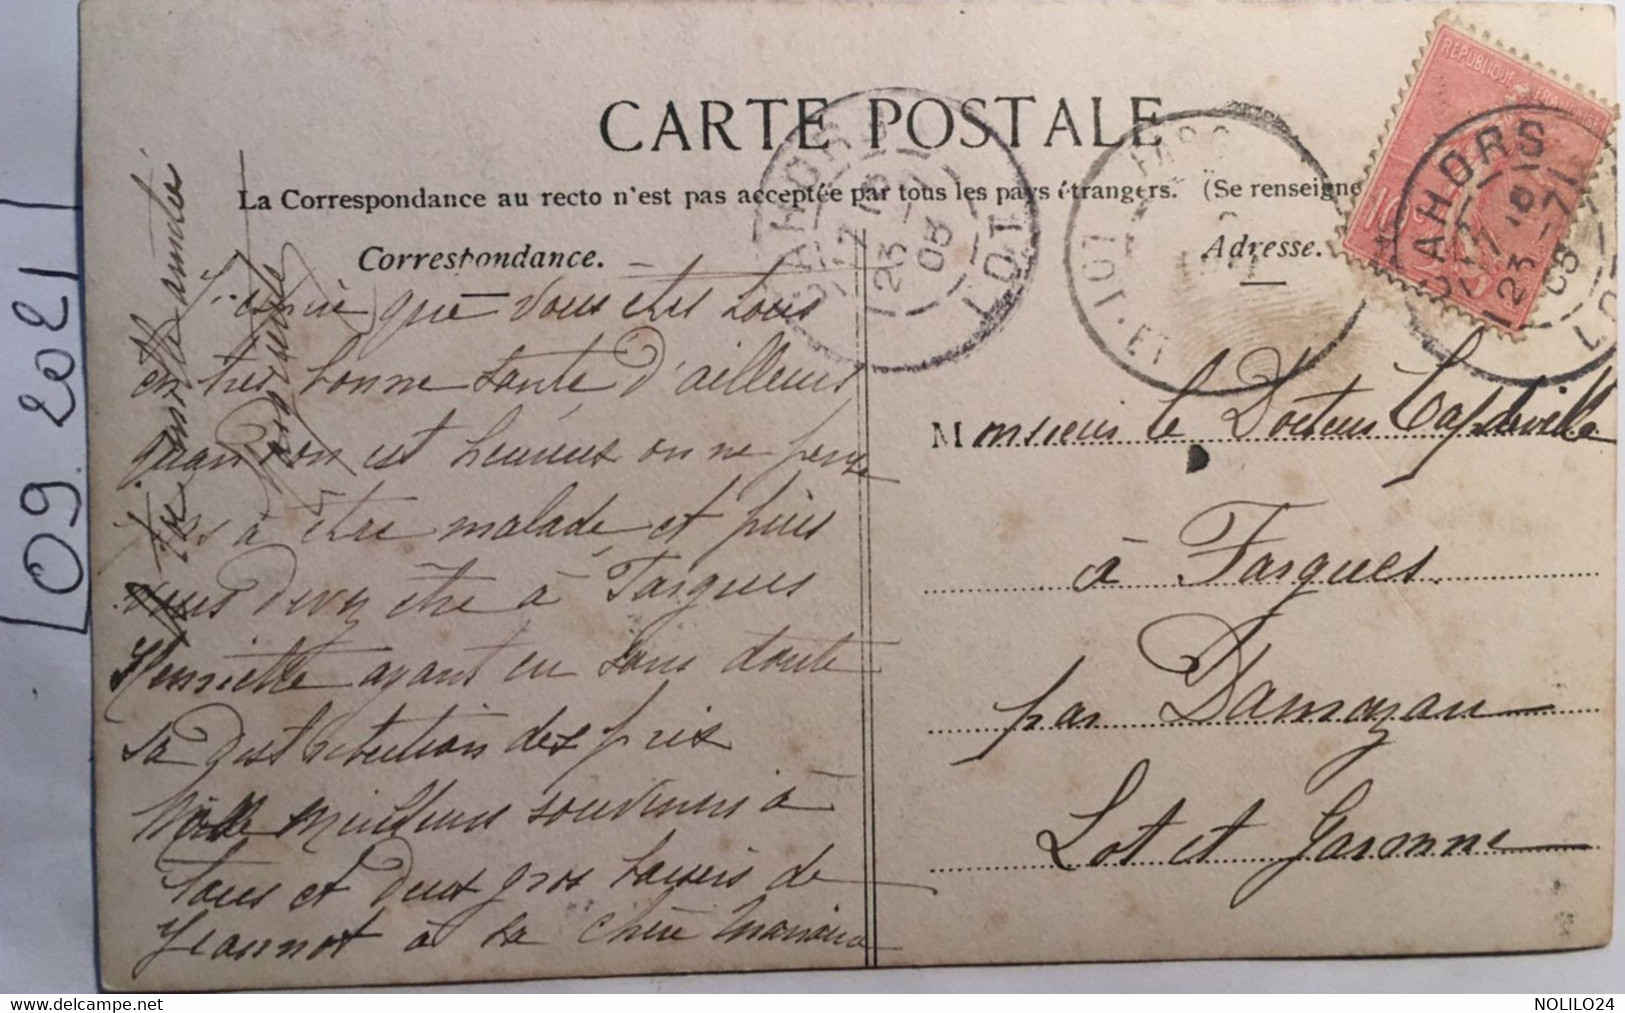 CARTE POSTALE
La Correspondance au recto n'est pas acceptée par tous les pays étrangers. (Se renseigne
Correspondance.
Adresse.
REPUBLIQUE FRANCAISE
10
CAHORS
17 15
23 -7
05
LOT
CAHORS
17 15
23 -7
05
LOT
LOT-ET
J'espère que vous êtes tous
en très bonne santé d'ailleurs
quand on est heureux on ne pense
pas à être malade et puis
vous devez être à Fargues
Henriette ayant eu sans doute
sa distribution des prix
Mille meilleurs souvenirs à
tous et deux gros baisers de
Jeannot à sa chère marraine
amitié
Monsieur le Docteur Capdeville
à Fargues.
par Damazan
Lot et Garonne
09.2021
NOLILO24